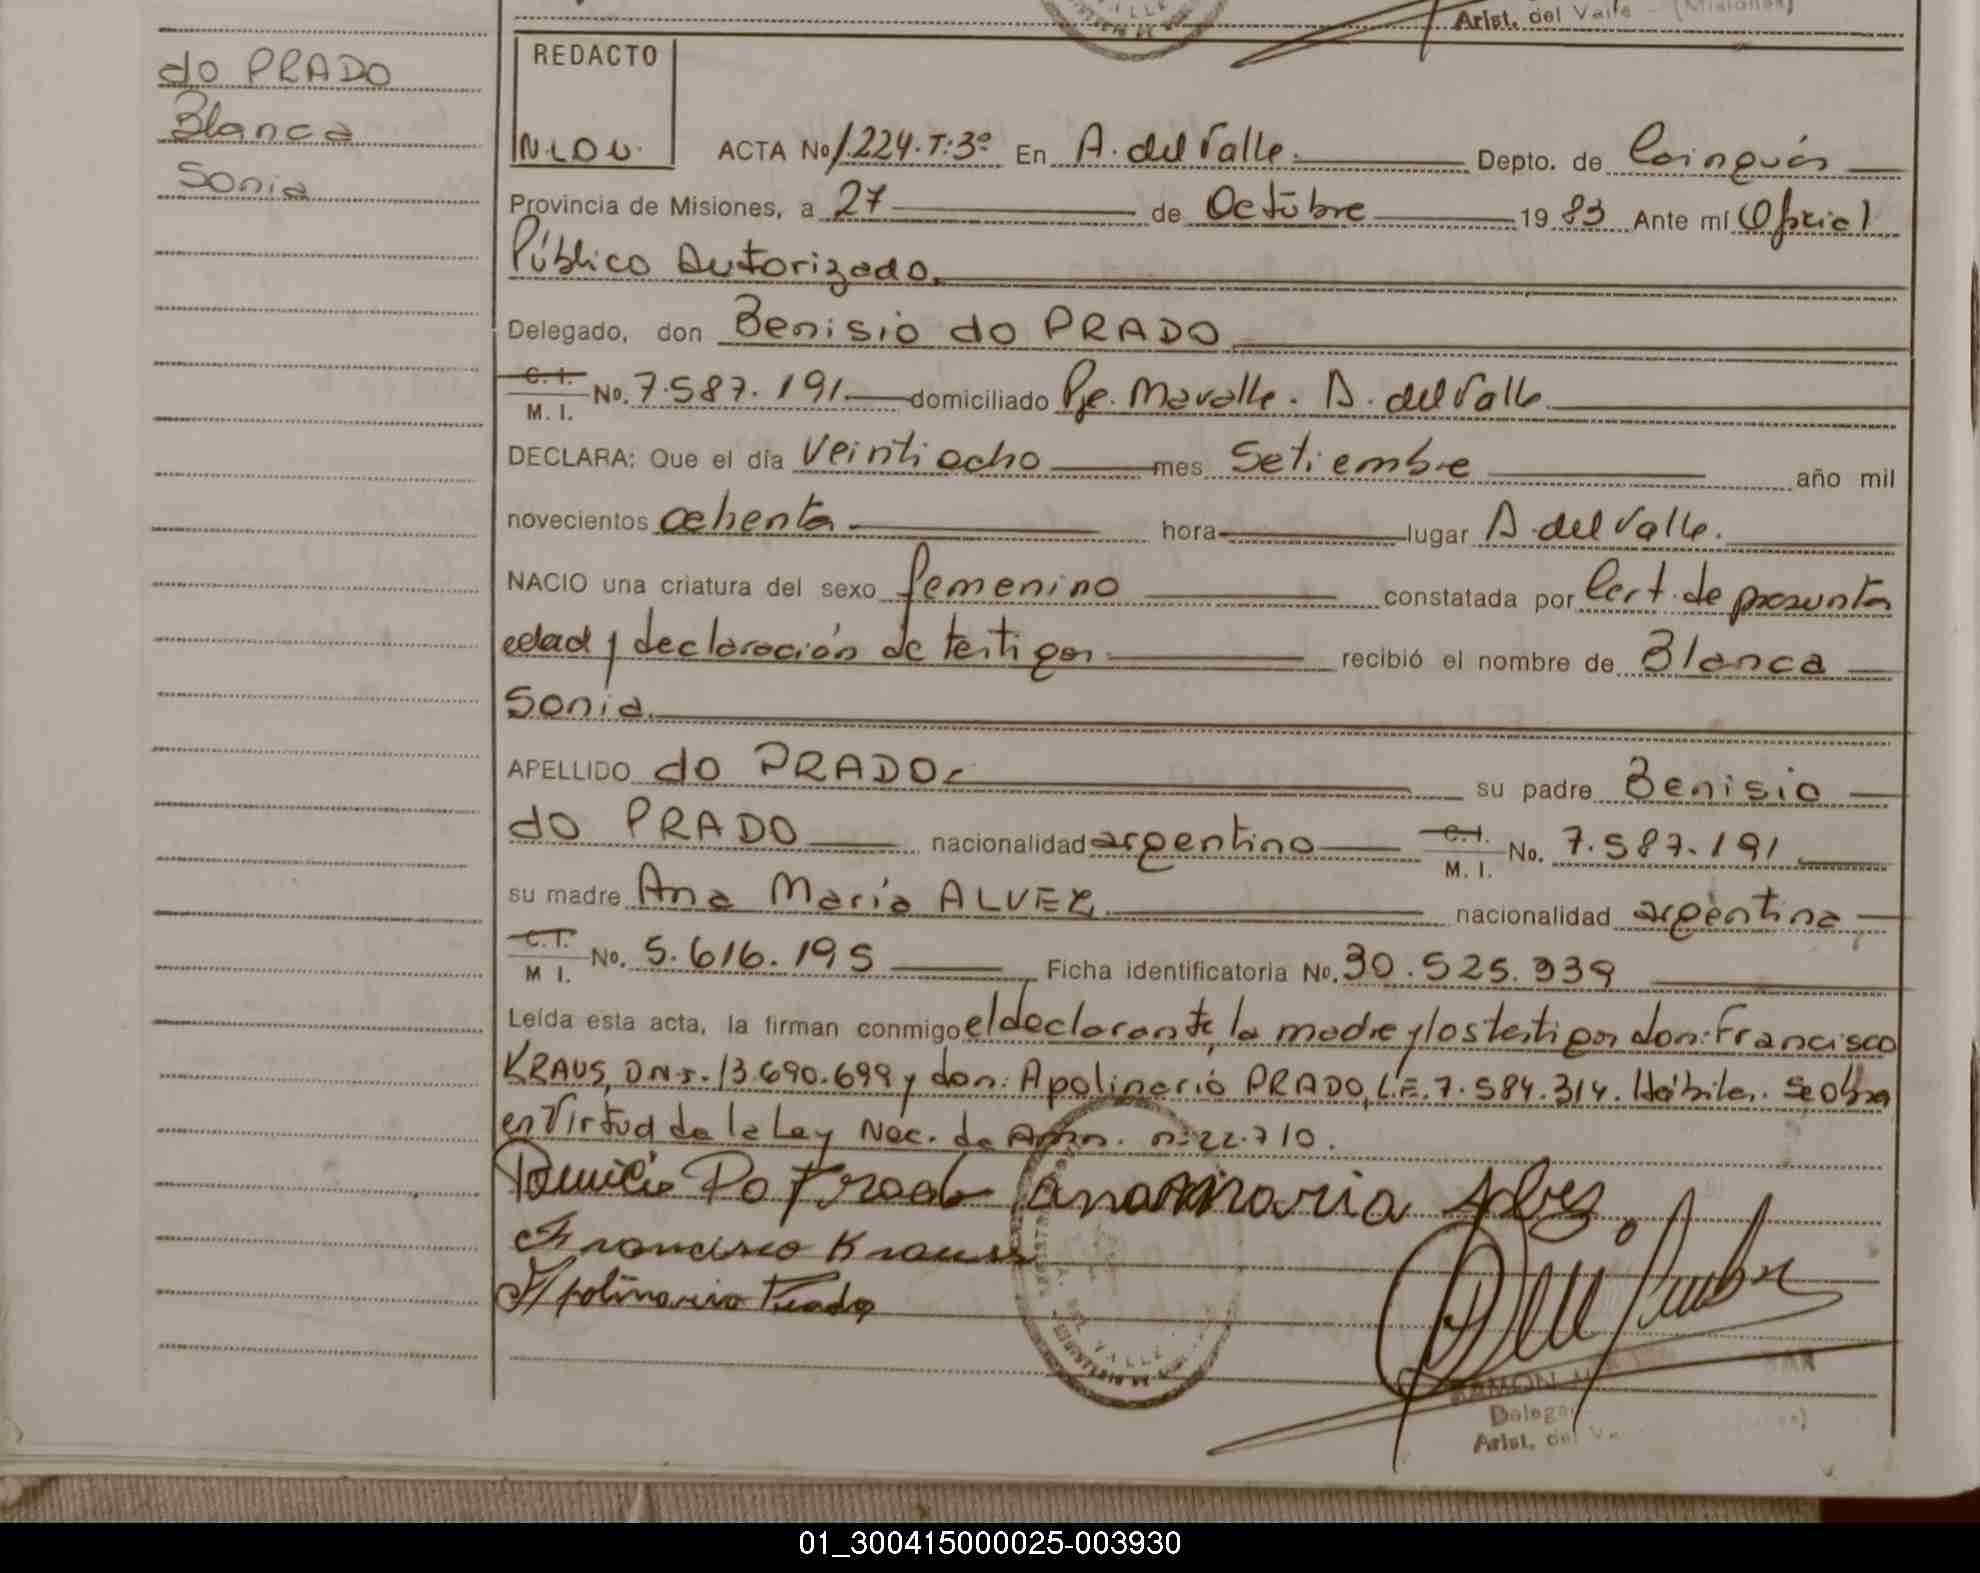 Arist. del Valle (Misiones)
do PRADO
Blanca
Sonia
REDACTO
N.L.O.V.
ACTA No 1.224.T:3º En A. del Valle. Depto. de Cainguás
Provincia de Misiones, a 27 de Octubre 19 83 Ante mí Oficial
Público Autorizado.
Delegado, don Benisio do PRADO
C. I. M. I. No. 7.587.191. domiciliado Pje. Mavalle. A. del Valle
DECLARA: Que el día veintiocho mes Setiembre año mil
novecientos ochenta hora lugar A. del Valle.
NACIO una criatura del sexo femenino constatada por Cert. de presunta
edad y declaración de testigos recibió el nombre de Blanca
Sonia.
APELLIDO do PRADO. su padre Benisio
do PRADO nacionalidad argentino C. I. M. I. No. 7.587.191
su madre Ana María ALVEZ nacionalidad argentina
C. I. M I. No. 5.616.195 Ficha identificatoria No. 30.525.939
Leída esta acta, la firman conmigo el declarante, la madre y los testigos don: Francisco
KRAUS, D.N.I. 13.690.699 y don: Apolinario PRADO, L.E. 7.584.314. Hábiles. Se obra
en Virtud de la Ley Nac. de Amn. nº 22.710.
Do Prado ana maria Alves
Francisco Krauss
Apolinario Prado
A. DEL VALLE
RAMON
Delega
Arist. del V
01_300415000025-003930